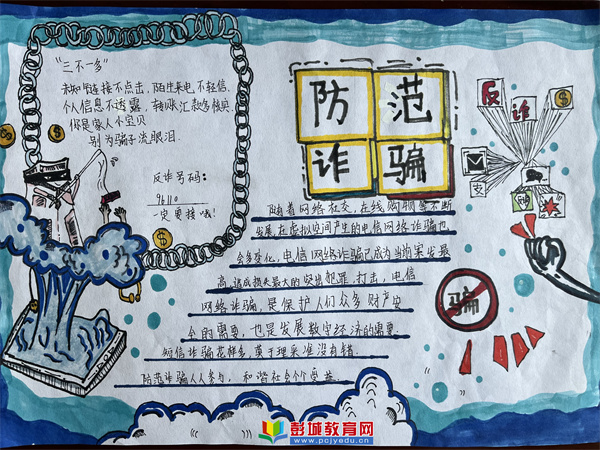 "三不一多"
未知链接不点击,陌生来电不轻信,
个人信息不透露,转账汇款多核实
你是家人小宝贝
别为骗子流眼泪.
反诈号码:
96110
一定要接哦!
防范
诈骗
反 诈 $
支
骗
随着网络社交,在线购物等不断
发展,在虚拟空间产生的电信网络诈骗也
会多变化,电信网络诈骗已成为当前案发最
高,造成损失最大的突出犯罪,打击,电信
网络诈骗,是保护人们众多财产安
全的需要,也是发展数字经济的需要.
短信诈骗花样多,莫于理采准没有错.
防范诈骗人人参与,和谐社会个个受益.
彭城教育网
www.pcjyedu.cn